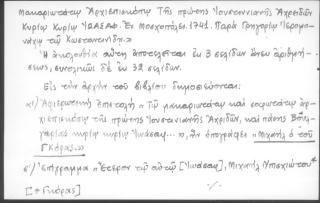 μακαριωτάτῳ Ἀρχιεπισκόπῳ τῆς πρώτης Ἰουστινιανῆς Ἀχρειδῶν
Κυρίῳ Κυρίῳ ΙΩΑΣΑΦ. Ἐν Μοσχοπόλει 1741. Παρὰ Γρηγορίῳ Ἱερομο-
νάχῳ τῷ Κωνσταντινίδῃ.»
Ἡ ἀκολουθία αὕτη ἀποτελεῖται ἐκ 3 σελίδων ἄνευ ἀριθμή-
σεως, συνολικῶς δὲ ἐκ 32 σελίδων.
Εἰς τὴν ἀρχὴν τοῦ βιβλίου δημοσιεύονται:
α') Ἀφιερωτικὴ ἐπιστολὴ «Τῷ μακαριωτάτῳ καὶ σοφωτάτῳ ἀρ-
χιεπισκόπῳ τῆς πρώτης Ἰουστινιανῆς Ἀχριδῶν, καὶ πάσης Βουλ-
γαρίας κυρίῳ κυρίῳ Ἰωάσαφ...», ἣν ὑπογράφει «Μιχαὴλ ὁ τοῦ
Γκόρας.»
β') Ἐπίγραμμα «Ἕτερον τῷ αὐτῷ [Ἰωάσαφ], Μιχαὴλ Ἠπεσχιώτου*
[* Γκόρας]
·/.